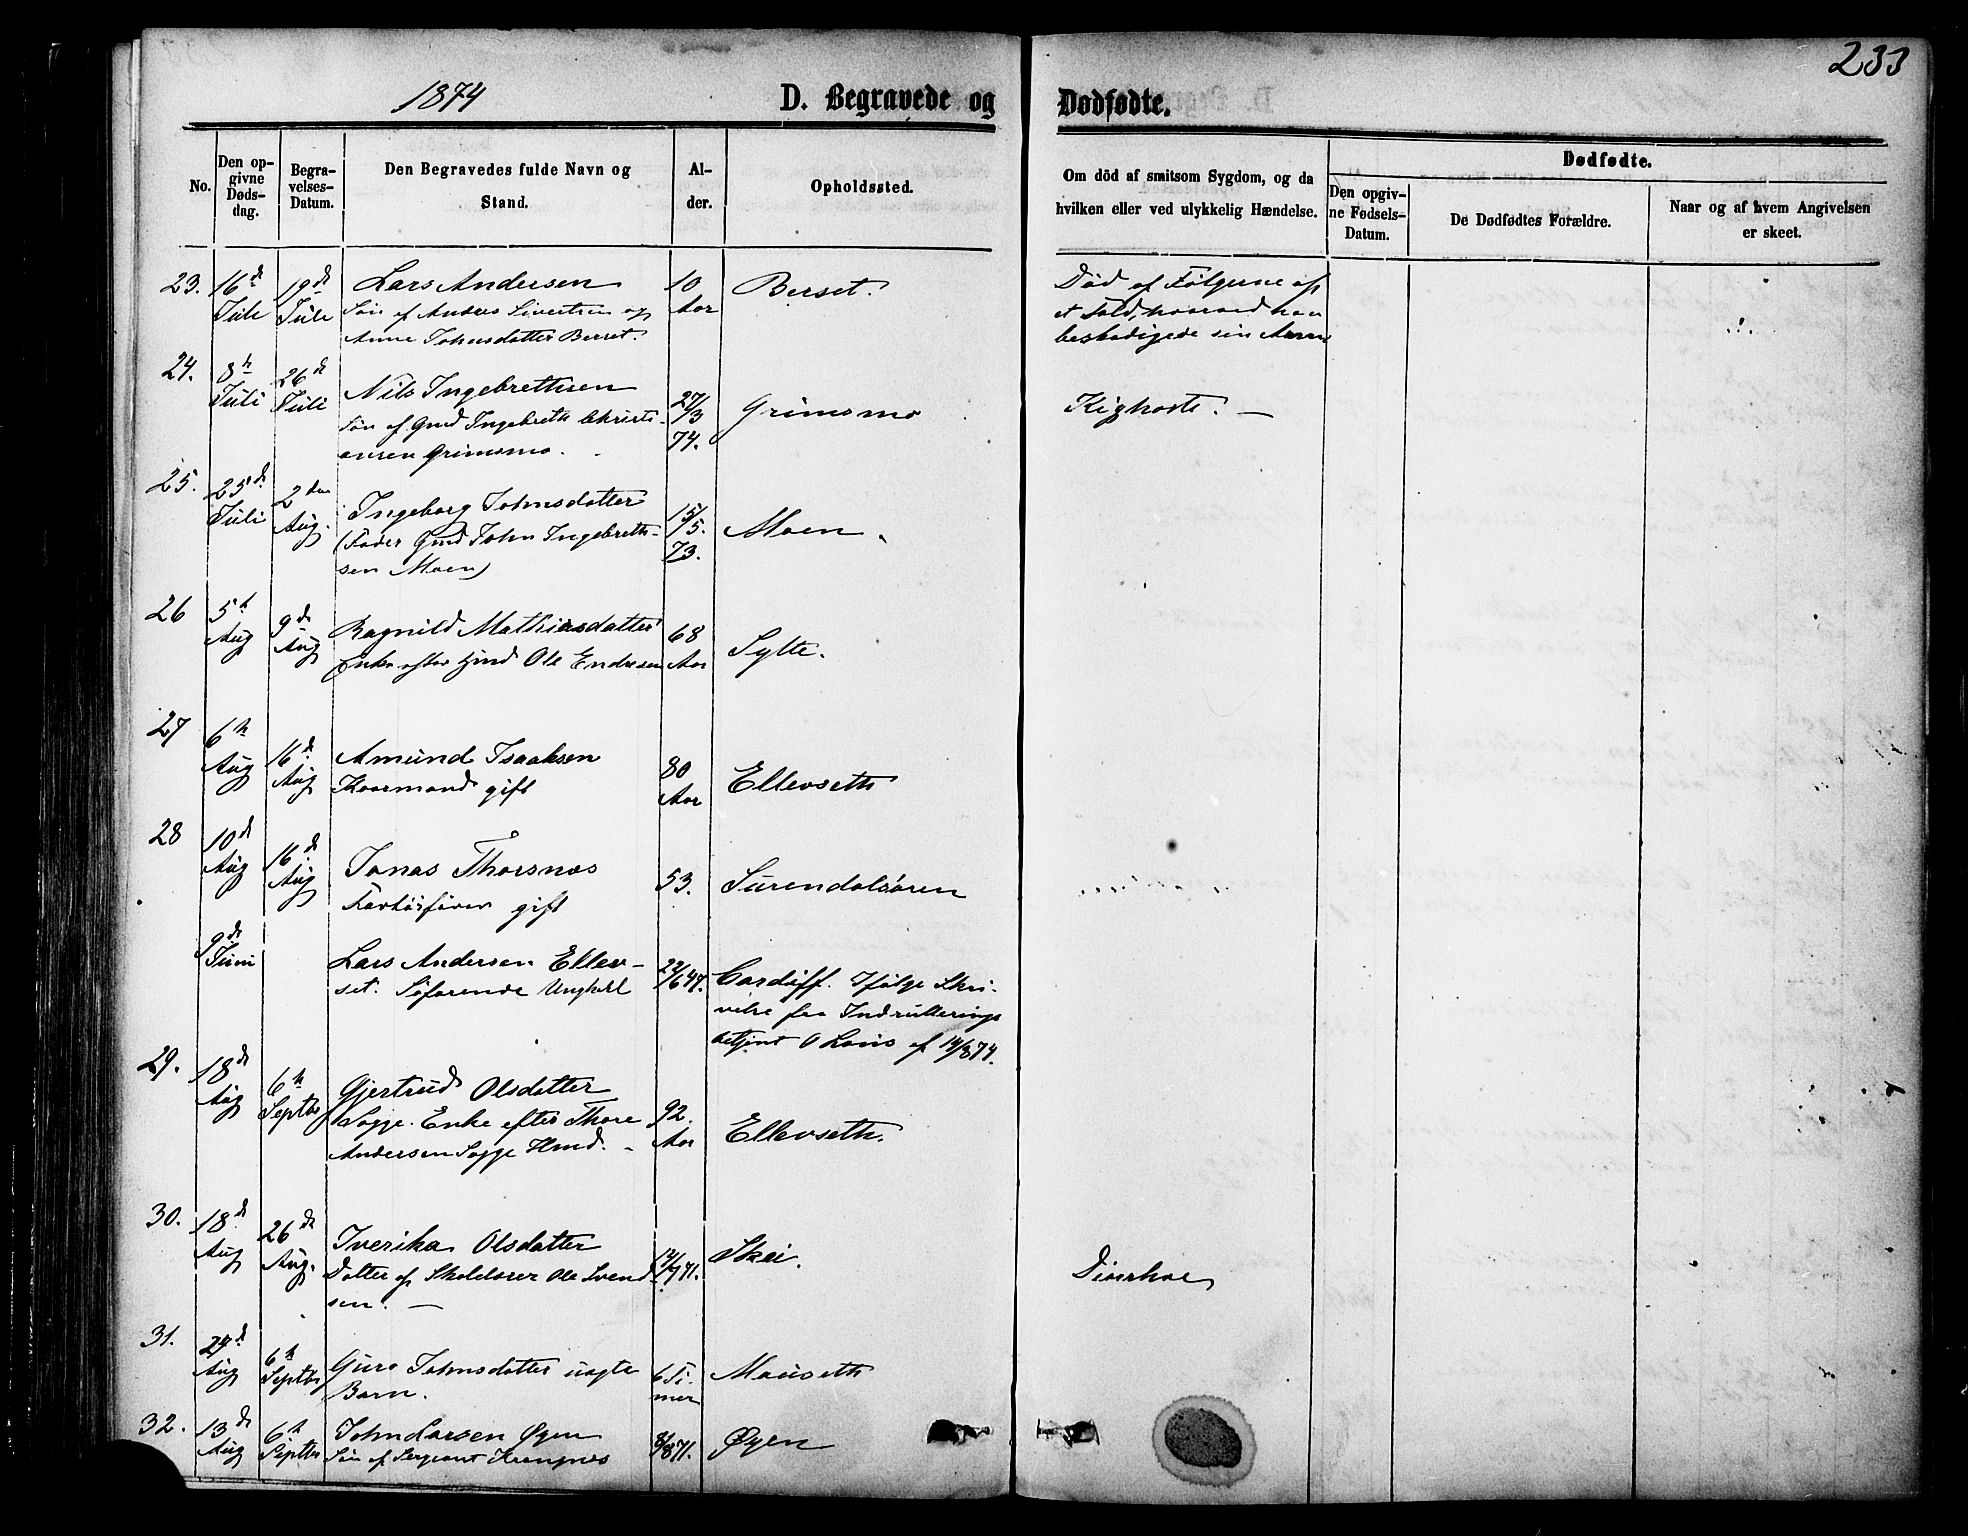 233
1874
D. Begravede og Dødfødte.
No.
Den opgivne Dødsdag.
Begravelses-Datum.
Den Begravedes fulde Navn og Stand.
Alder.
Opholdssted.
Om död af smitsom Sygdom, og da hvilken eller ved ulykkelig Hændelse.
Dødfødte.
Den opgivne Fødsels-Datum.
De Dødfødtes Forældre.
Naar og af hvem Angivelsen er skeet.
23. 16de Juli 19de Juli Lars Andersen 10 Aar Berset.
Søn af Anders Sivertsen og
Anne Johnsdatter Berset.
Död af Følgerne af
et Fald, hvorved han
beskadigede sin Arm
24. 8de Juli 26de Juli Nils Ingebrethsen 27/3 74. Grimsmo Kighoste. —
Søn af Gmd Ingebreth Christi-
ansen Grimsmo.
25. 25de Juli 2den Aug. Ingeborg Johnsdatter 15/5. 73. Moen.
(Fader Gmd John Ingebreth-
sen Moen)
26 5te Aug 9de Aug Ragnild Mathiasdatter 68 Aar Sylte.
Enke efter Ole Endresen
27 6te Aug 16de Aug Amund Isaksen 80 Aar Ellevseth
Kaarmand gift
28 10de Aug 16de Aug Jonas Thorsnes 53. Surendalsøren
gift
9de Juni Lars Andersen Ellev-
set. Søfarende Ungkarl 22/6 47. Cardiff. Ifølge Skri-
velse fra Indrullerings
betjent O Lous af 14/8 74.
29. 18de Aug 6te Septbr Gjertrud Olsdatter 92. Aar Ellevseth.
Sogge. Enke efter Thore
Andersen Sogge Hmd. -
30. 18de Aug 26de Aug. Iverika Olsdatter 12/7 71. Skei. Diarrhoe
Datter af Skolelærer Ole Svend-
sen. —
31. 24de Aug 6te Septbr Guro Johnsdatter uægte 6 Ti-
mer Mauseth
Barn.
32. 13de Aug 6te Septbr John Larsen Øyen 8/8 71. Øyen
Søn af Sergeant Krangnes